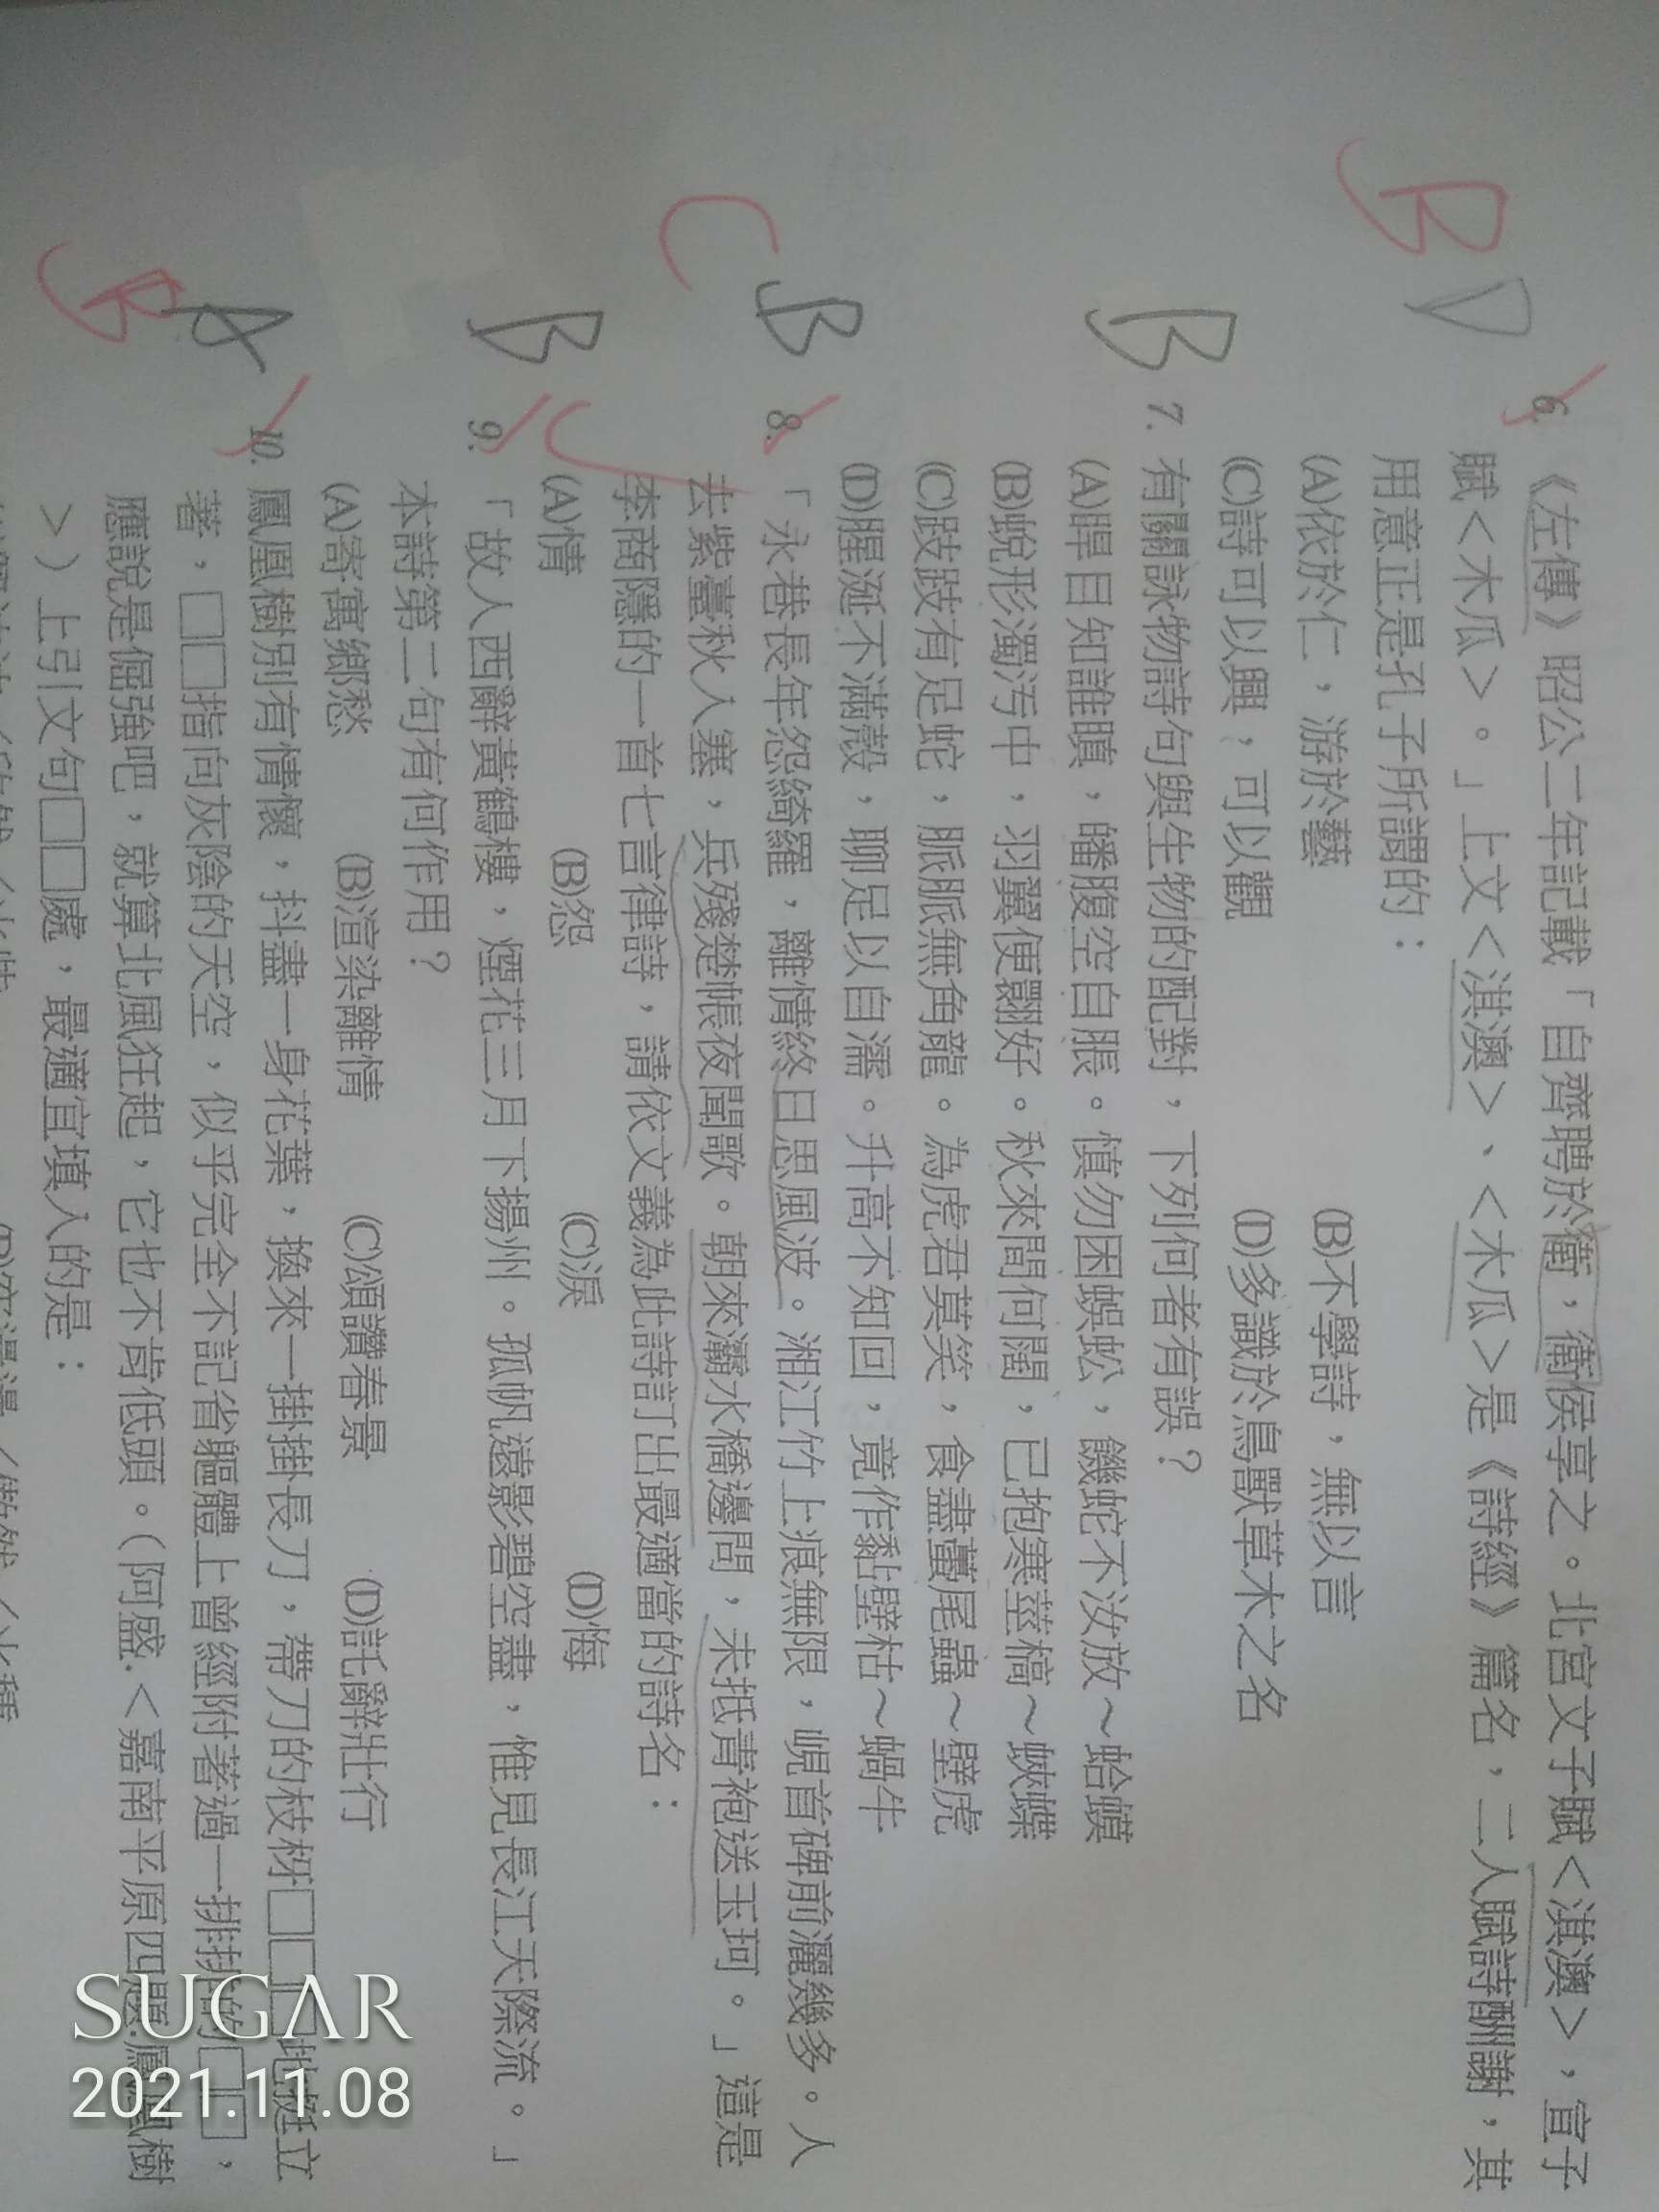 B D 6.《左傳》昭公二年記載「自齊聘於衛,衛侯享之。北宮文子賦<淇澳>,宣子
賦<木瓜>。」上文<淇澳>、<木瓜>是《詩經》篇名,二人賦詩酬謝,其
用意正是孔子所謂的:
(A)依於仁,游於藝 (B)不學詩,無以言
(C)詩可以興,可以觀 (D)多識於鳥獸草木之名
B 7. 有關詠物詩句與生物的配對,下列何者有誤?
(A)睅目知誰瞋,皤腹空自脹。慎勿困蜈蚣,饑蛇不汝放~蛤蟆
(B)蛻形濁汚中,羽翼便翾好。秋來間何闊,已抱寒莖槁~蛺蝶
(C)跂跂有足蛇,脈脈無角龍。為虎君莫笑,食盡蠆尾蟲~壁虎
(D)腥涎不滿殼,聊足以自濡。升高不知回,竟作黏壁枯~蝸牛
C B 8.「永巷長年怨綺羅,離情終日思風波。湘江竹上痕無限,峴首碑前灑幾多。人
去紫臺秋入塞,兵殘楚帳夜聞歌。朝來灞水橋邊問,未抵青袍送玉珂。」這是
李商隱的一首七言律詩,請依文義為此詩訂出最適當的詩名:
(A)情 (B)怨 (C)淚 (D)悔
B 9.「故人西辭黃鶴樓,煙花三月下揚州。孤帆遠影碧空盡,惟見長江天際流。」
本詩第二句有何作用?
(A)寄寓鄉愁 (B)渲染離情 (C)頌讚春景 (D)託辭壯行
B A 10. 鳳凰樹別有情懷,抖盡一身花葉,換來一掛掛長刀,帶刀的枝枒□□□地挺立
著,□□指向灰陰的天空,似乎完全不記省軀體上曾經附著過一排排的□□,
應說是倔強吧,就算北風狂起,它也不肯低頭。(阿盛.<嘉南平原四題.鳳凰樹
>)上引文句□□處,最適宜填入的是:
SUGAR
2021.11.08